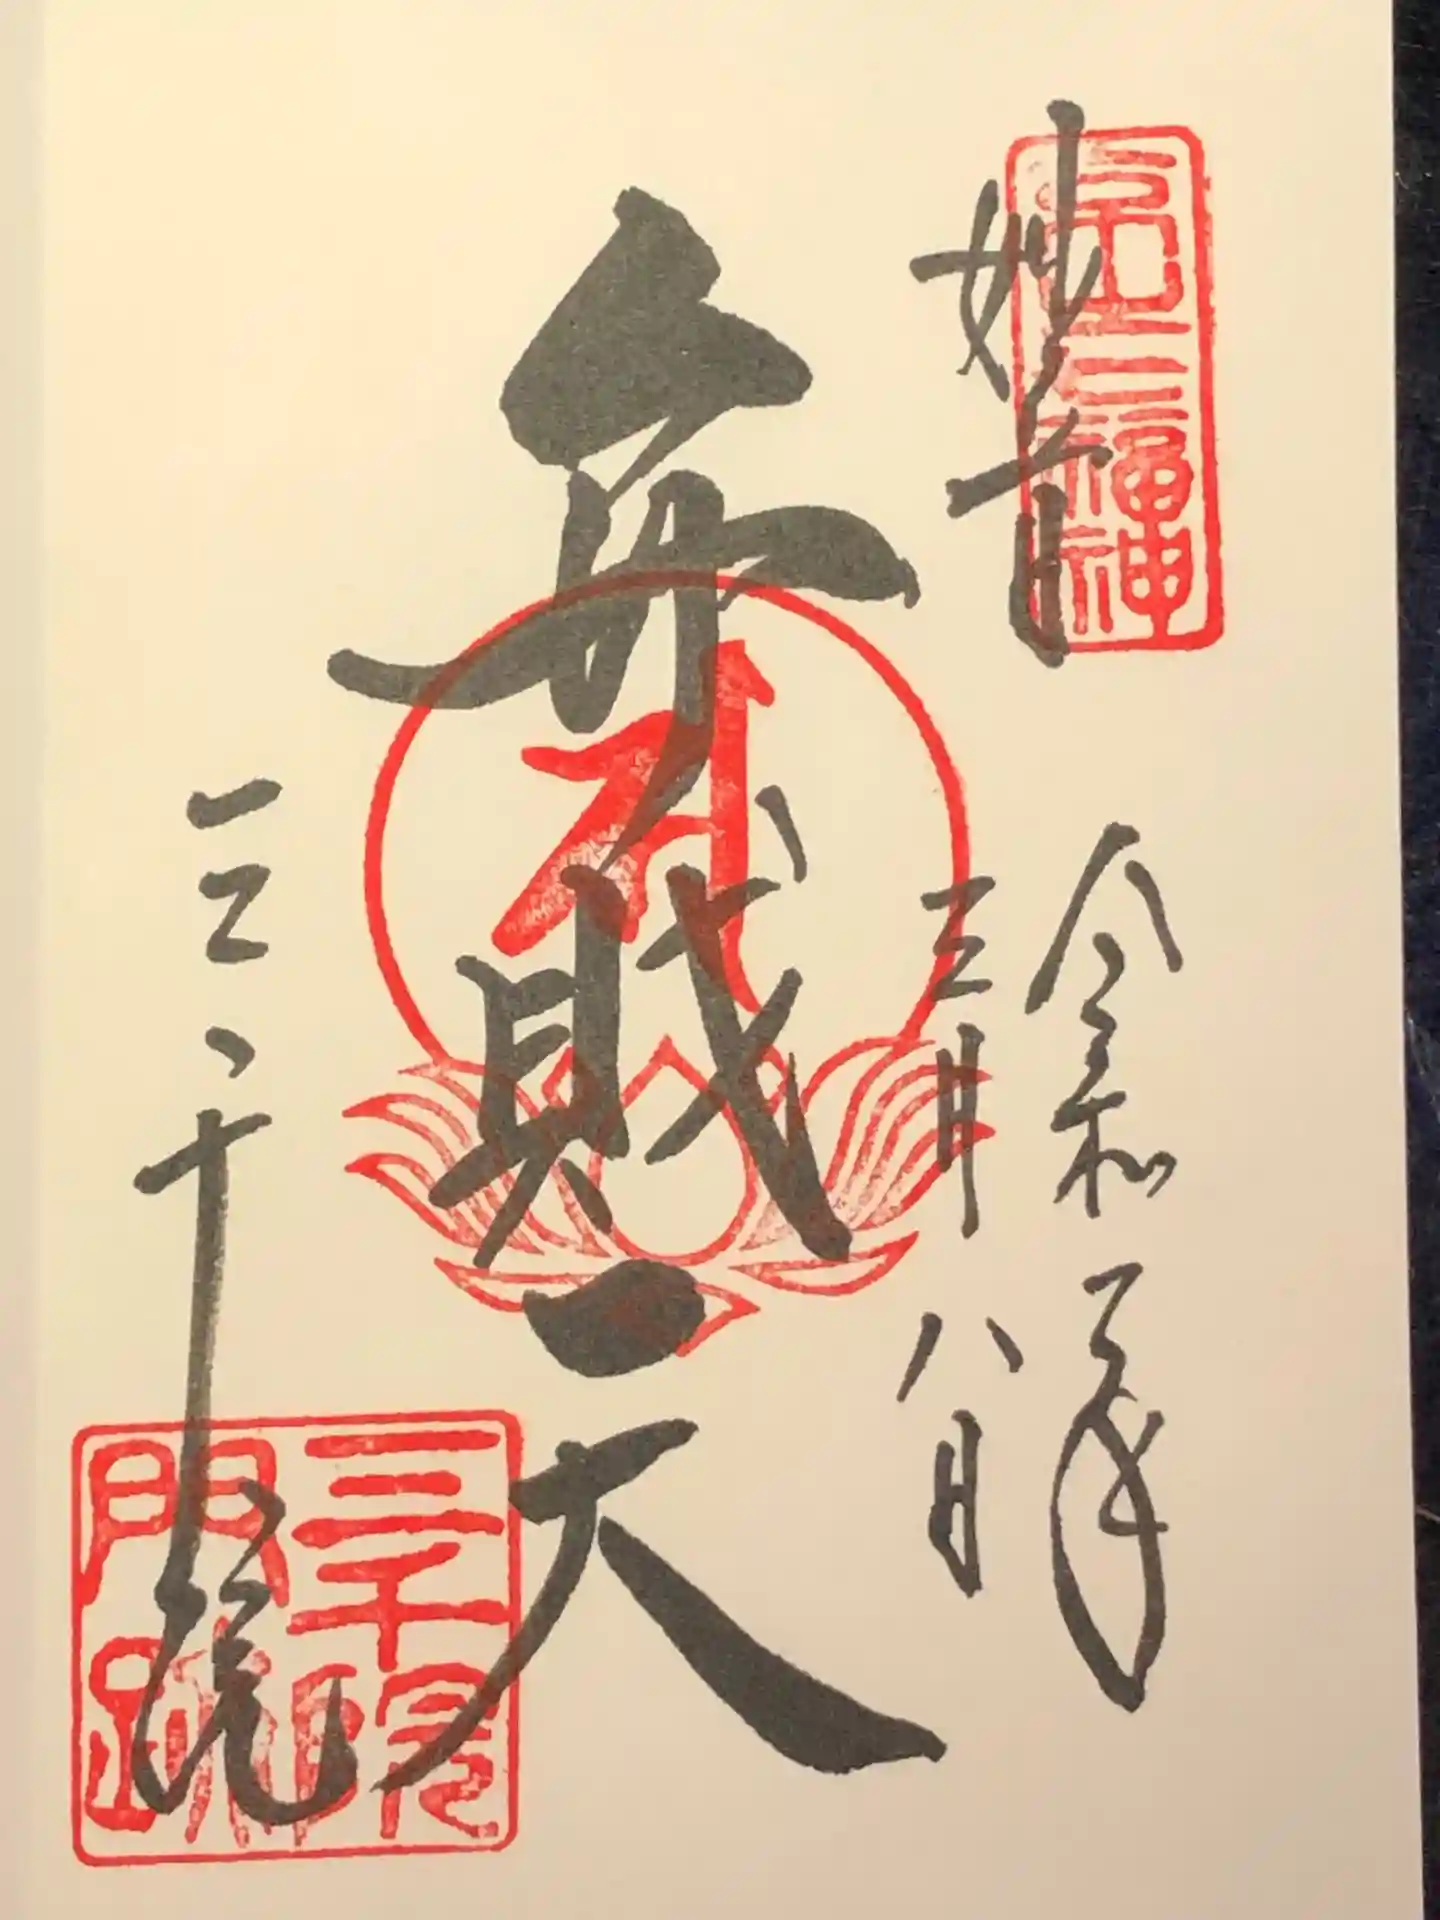 妙音
令和二年
三月八日
弁財天
三千院
福神
三千院
門跡